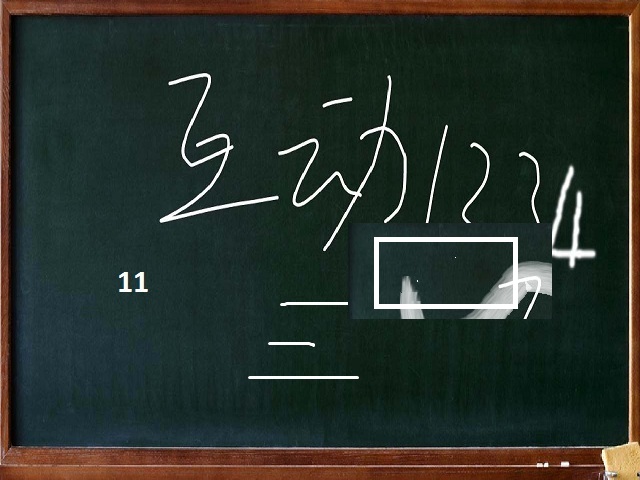 互动123
4
11
三